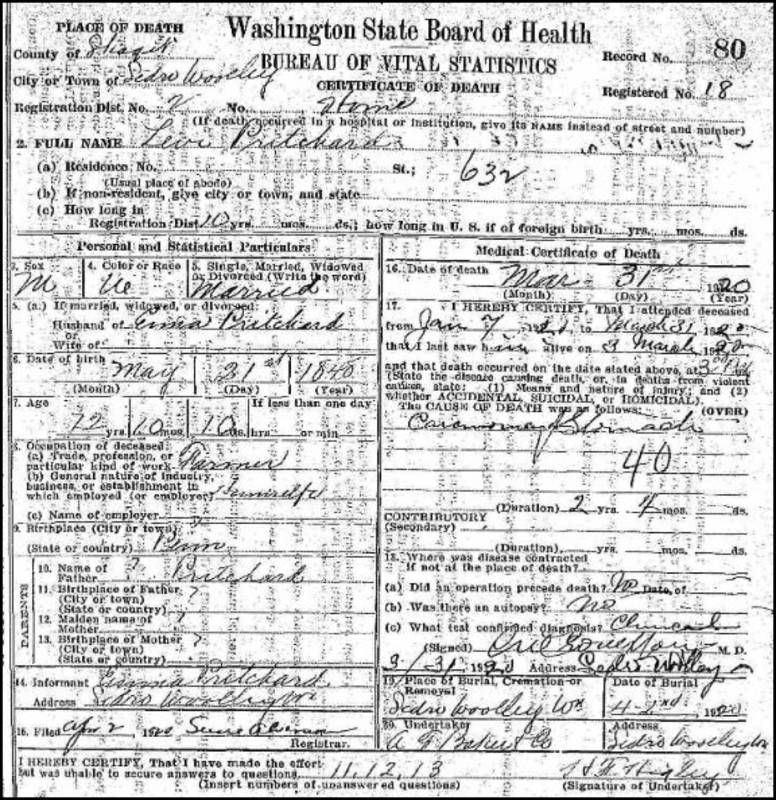 PLACE OF DEATH
Washington State Board of Health
BUREAU OF VITAL STATISTICS
CERTIFICATE OF DEATH
County of Skagit
City or Town of Sedro Woolley
Registration Dist. No. 2 No. Home
Record No. 80
Registered No. 18
(If death occurred in a hospital or institution, give its NAME instead of street and number)
2. FULL NAME Levi Pritchard
(a) Residence No. St.; 632
(Usual place of abode)
(b) If non-resident, give city or town, and state
(c) How long in
Registration Dist. 10 yrs. mos. ds.; how long in U. S. if of foreign birth yrs. mos. ds.
Personal and Statistical Particulars
3. Sex
M
4. Color or Race
W
5. Single, Married, Widowed
or Divorced (Write the word)
Married
5. (a.) If married, widowed, or divorced:
Husband of Emma Pritchard
or
Wife of
6. Date of birth May 31st
(Month) (Day) (Year)
7. Age
If less than one day
yrs. 10 mos. 10 ds. hrs. or min.
8. Occupation of deceased:
(a) Trade, profession, or
particular kind of work Farmer
(b) General nature of industry,
business, or establishment in
which employed (or employer)
(c) Name of employer
9. Birthplace (City or town) ?
(State or country) Penn
PARENTS
10. Name of
Father ? Pritchard
11. Birthplace of Father ?
(City or town)
(State or country)
12. Maiden name of ?
Mother
13. Birthplace of Mother ?
(City or town)
(State or country)
14. Informant Emma Pritchard
Address Sedro Woolley Wn
15. Filed Apr 2 1920
Registrar.
Medical Certificate of Death
16. Date of death Mar 31st 1920
(Month) (Day) (Year)
17. I HEREBY CERTIFY, That I attended deceased
from Jan 7 to March 31 1920
that I last saw him alive on 3 March 1920
and that death occurred on the date stated above, at
(State the disease causing death, or, in deaths from violent
causes, state: (1) Means and nature of injury; and (2)
whether ACCIDENTAL, SUICIDAL, or HOMICIDAL).
The CAUSE OF DEATH was as follows: (OVER)
Carcinoma of Stomach
40
(Duration) 2 yrs. 4 mos. ds.
CONTRIBUTORY
(Secondary)
(Duration) yrs. mos. ds.
18. Where was disease contracted
if not at the place of death?
(a) Did an operation precede death? No Date of
(b) Was there an autopsy? No
(c) What test confirmed diagnosis? Clinical
(Signed) M. D.
3/31 1920 Address Sedro Woolley
19. Place of Burial, Cremation or
Removal
Sedro Woolley Wn
Date of Burial
4-2nd 1920
20. Undertaker
Address
Sedro Woolley Wn
I HEREBY CERTIFY, That I have made the effort
but was unable to secure answers to questions 11, 12, 13
(Insert numbers of unanswered questions)
(Signature of Undertaker)